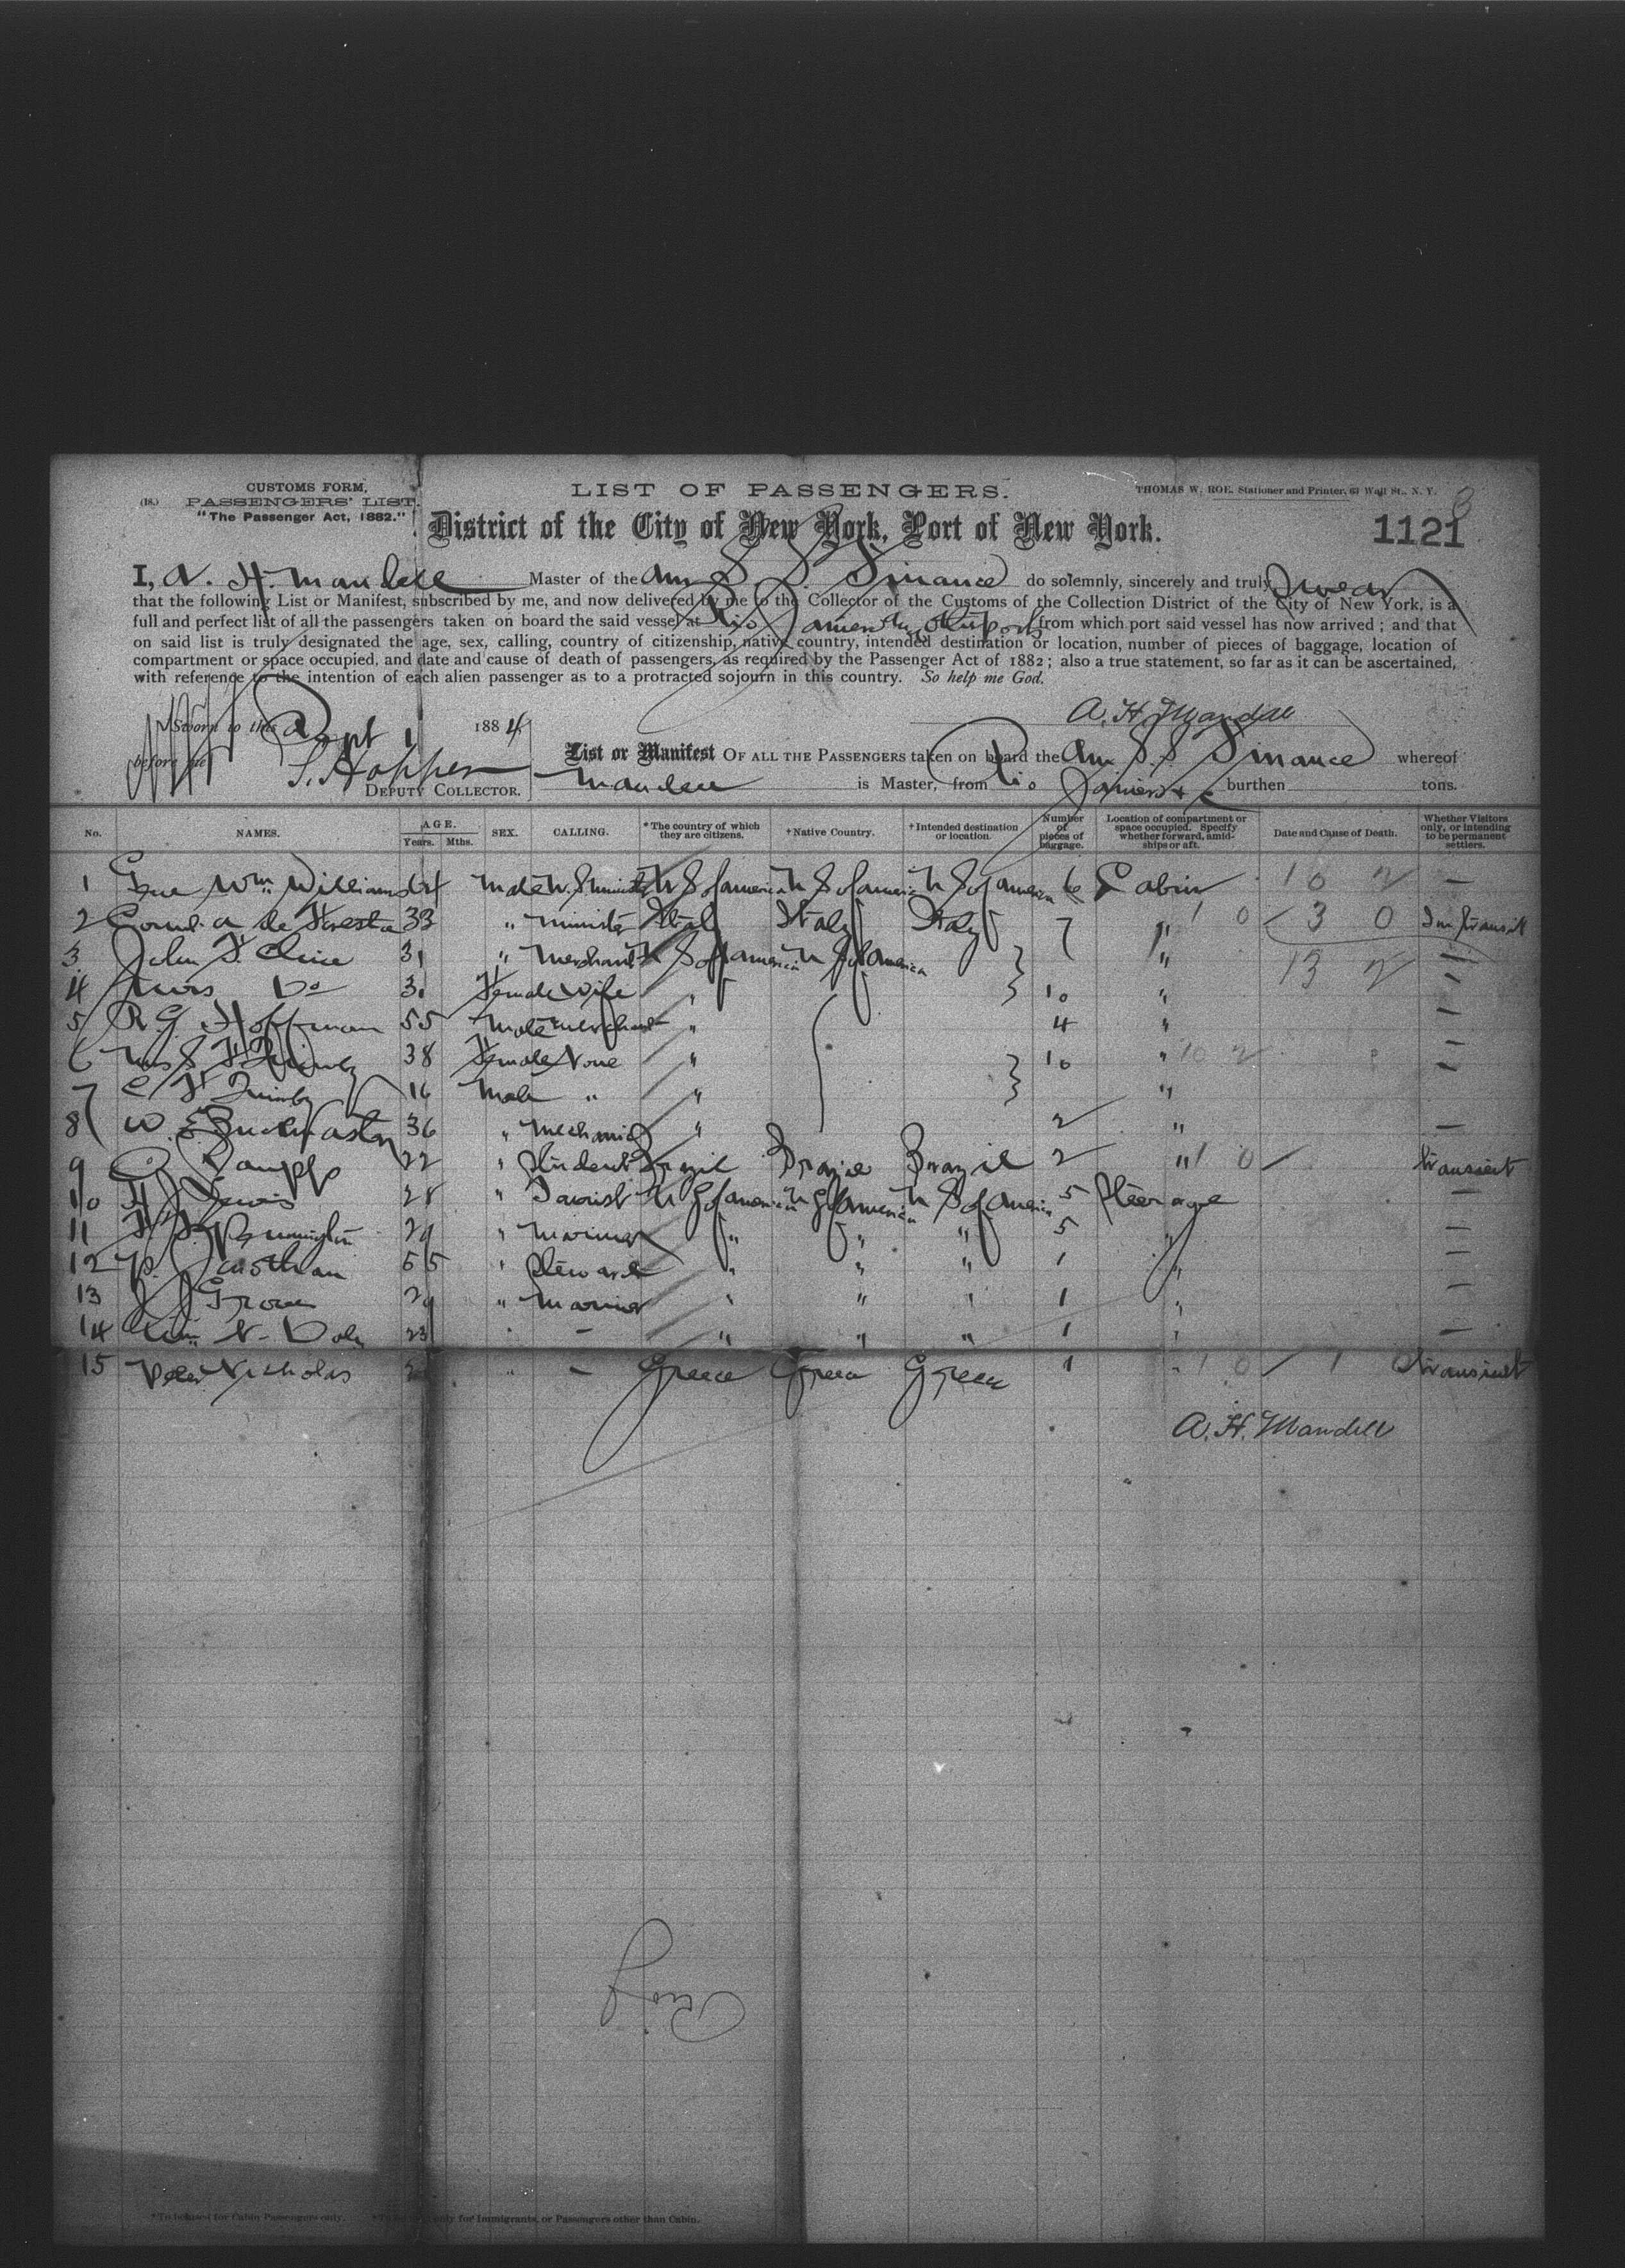 CUSTOMS FORM.
(18.) PASSENGERS' LIST.
"The Passenger Act, 1882."
LIST OF PASSENGERS.
THOMAS W. ROE, Stationer and Printer, 63 Wall St., N. Y.
District of the City of New York, Port of New York.
1121
I, A. H. Mandell Master of the Am S. S. Finance do solemnly, sincerely and truly Swear
that the following List or Manifest, subscribed by me, and now delivered by me to the Collector of the Customs of the Collection District of the City of New York, is a
full and perfect list of all the passengers taken on board the said vessel at Rio Janeiro & other ports from which port said vessel has now arrived ; and that
on said list is truly designated the age, sex, calling, country of citizenship, native country, intended destination or location, number of pieces of baggage, location of
compartment or space occupied, and date and cause of death of passengers, as required by the Passenger Act of 1882 ; also a true statement, so far as it can be ascertained,
with reference to the intention of each alien passenger as to a protracted sojourn in this country. So help me God.
A. H. Mandell
Sworn to this Sept 1 1884
before me S. Hopper
DEPUTY COLLECTOR.
List or Manifest OF ALL THE PASSENGERS taken on board the Am S. S. Finance whereof
Mandell is Master, from Rio Janeiro burthen tons.
No. NAMES. AGE. Years. Mths. SEX. CALLING. *The country of which they are citizens. †Native Country. †Intended destination or location. Number of pieces of baggage. Location of compartment or space occupied. Specify whether forward, amidships or aft. Date and Cause of Death. Whether Visitors only, or intending to be permanent settlers.
1 Wm Williams 64 Male U. S. Minister U S of America U S of America U S of America 6 Cabin —
2 de Foresta 33 " Minister Italy Italy Italy 7 " In transit
3 John F. Cline 31 " Merchant U S of America U S of America " —
4 Mrs Do 31 Female Wife " 10 " —
5 R G Hoffman 55 Male Merchant " 4 " —
6 Mrs F Quimby 38 Female None " 10 " —
7 C F Quimby 16 Male " " "
8 W. E. 36 " Mechanic " 2 " —
9 22 " Student Brazil Brazil Brazil 2 " transient
10 Lewis 28 " U S of America U S of America U S of America 5 Steerage —
11 Pennington 29 " Mariner " " " 5 " —
12 55 " Steward " " " 1 " —
13 29 " Mariner " " " 1 " —
14 Wm 23 " — " " " 1 " —
15 Peter Nicholas " — Greece Greece Greece 1 " transient
A. H. Mandell
*To be used for Cabin Passengers only.
only for Immigrants, or Passengers other than Cabin.